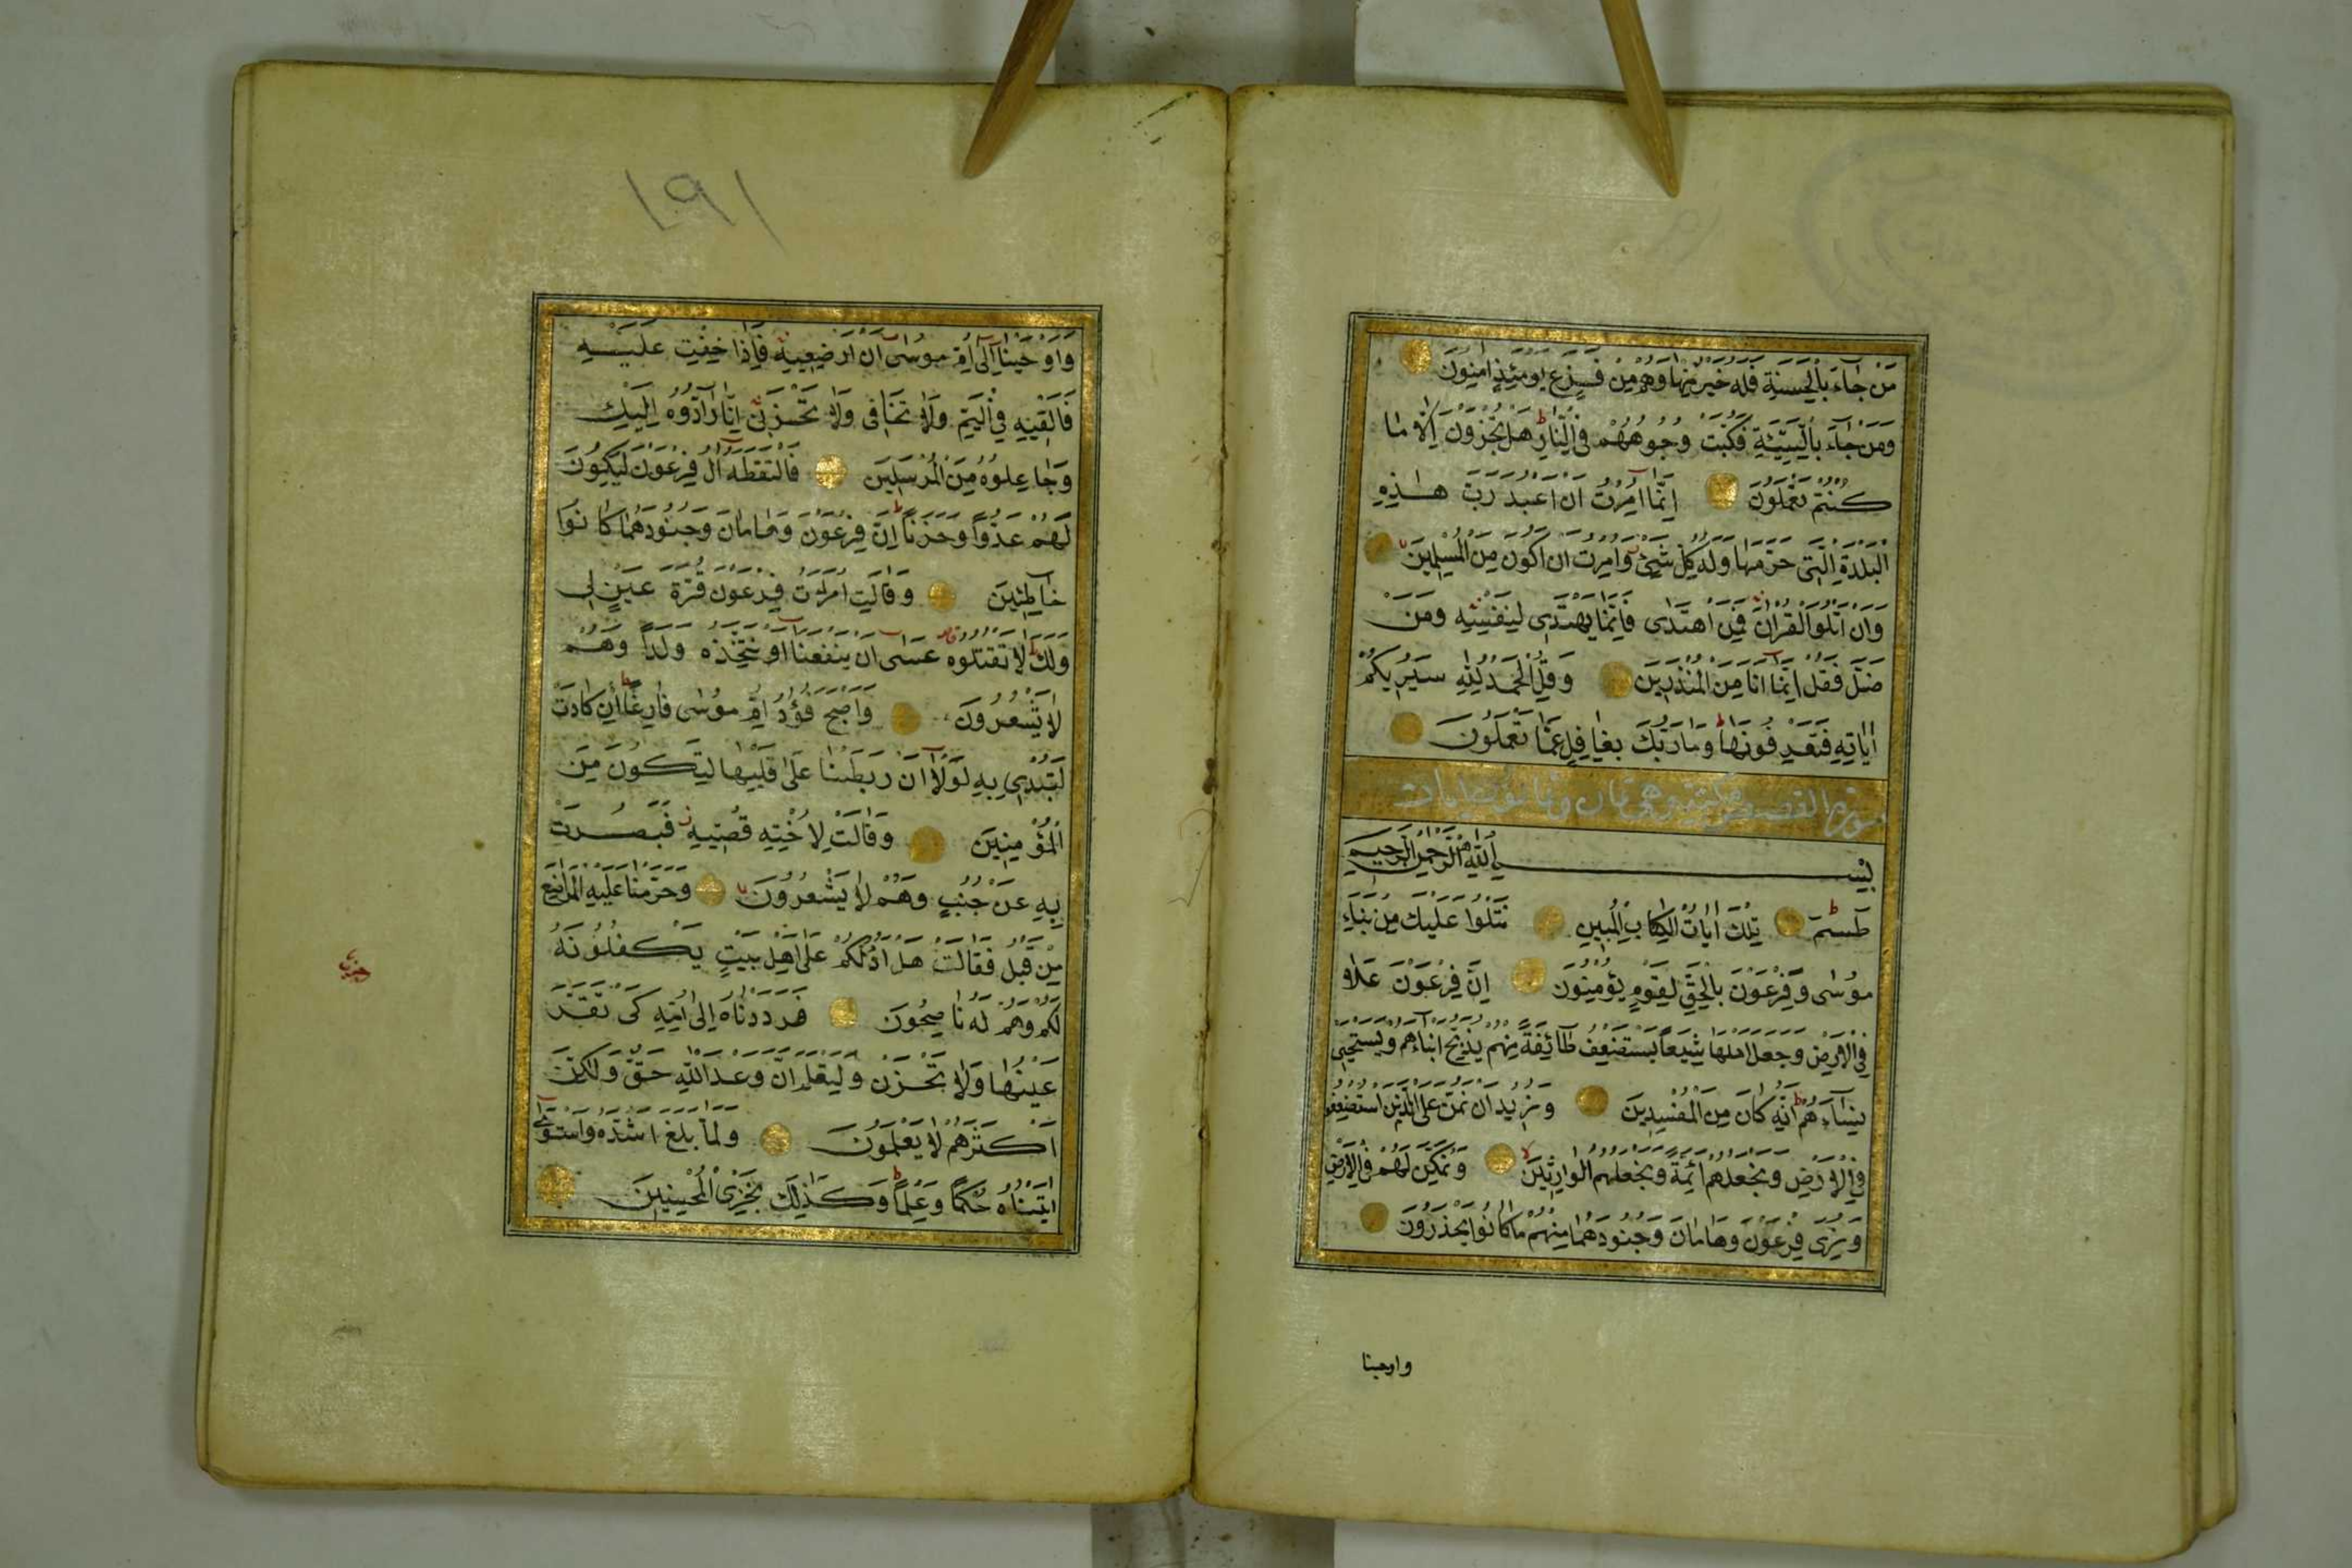 مَنْ جَاءَ بِالْحَسَنَةِ فَلَهُ خَيْرٌ مِنْهَا وَهُمْ مِنْ فَزَعٍ يَوْمَئِذٍ اٰمِنُونَ
وَمَنْ جَاءَ بِالسَّيِّئَةِ فَكُبَّتْ وُجُوهُهُمْ فِي النَّارِ ط هَلْ تُجْزَوْنَ اِلَّا مَا
كُنْتُمْ تَعْمَلُونَ اِنَّمَا اُمِرْتُ اَنْ اَعْبُدَ رَبَّ هٰذِهِ
الْبَلْدَةِ الَّتِي حَرَّمَهَا وَلَهُ كُلُّ شَيْءٍ وَاُمِرْتُ اَنْ اَكُونَ مِنَ الْمُسْلِمِينَ
وَاَنْ اَتْلُوَ الْقُرْاٰنَ فَمَنِ اهْتَدٰى فَاِنَّمَا يَهْتَدِي لِنَفْسِهِ وَمَنْ
ضَلَّ فَقُلْ اِنَّمَا اَنَا مِنَ الْمُنْذِرِينَ وَقُلِ الْحَمْدُ لِلّٰهِ سَيُرِيكُمْ
اٰيَاتِهِ فَتَعْرِفُونَهَا ط وَمَا رَبُّكَ بِغَافِلٍ عَمَّا تَعْمَلُونَ
سورة القصص مكية وهي ثمان وثمانون ايات
بِسْمِ اللّٰهِ الرَّحْمٰنِ الرَّحِيمِ
طٰسٓمٓ ط تِلْكَ اٰيَاتُ الْكِتَابِ الْمُبِينِ نَتْلُوا عَلَيْكَ مِنْ نَبَاءِ
مُوسٰى وَفِرْعَوْنَ بِالْحَقِّ لِقَوْمٍ يُؤْمِنُونَ اِنَّ فِرْعَوْنَ عَلَا
فِي الْاَرْضِ وَجَعَلَ اَهْلَهَا شِيَعًا يَسْتَضْعِفُ طَائِفَةً مِنْهُمْ يُذَبِّحُ اَبْنَاءَهُمْ وَيَسْتَحْيِي
نِسَاءَهُمْ ط اِنَّهُ كَانَ مِنَ الْمُفْسِدِينَ وَنُرِيدُ اَنْ نَمُنَّ عَلَى الَّذِينَ اسْتُضْعِفُوا
فِي الْاَرْضِ وَنَجْعَلَهُمْ اَئِمَّةً وَنَجْعَلَهُمُ الْوَارِثِينَ لا وَنُمَكِّنَ لَهُمْ فِي الْاَرْضِ
وَنُرِيَ فِرْعَوْنَ وَهَامَانَ وَجُنُودَهُمَا مِنْهُمْ مَا كَانُوا يَحْذَرُونَ
واوحينا
١٩١
وَاَوْحَيْنَا اِلٰى اُمِّ مُوسٰى اَنْ اَرْضِعِيهِ فَاِذَا خِفْتِ عَلَيْهِ
فَاَلْقِيهِ فِي الْيَمِّ وَلَا تَخَافِي وَلَا تَحْزَنِي اِنَّا رَادُّوهُ اِلَيْكِ
وَجَاعِلُوهُ مِنَ الْمُرْسَلِينَ فَالْتَقَطَهُ اٰلُ فِرْعَوْنَ لِيَكُونَ
لَهُمْ عَدُوًّا وَحَزَنًا ط اِنَّ فِرْعَوْنَ وَهَامَانَ وَجُنُودَهُمَا كَانُوا
خَاطِئِينَ وَقَالَتِ امْرَاَتُ فِرْعَوْنَ قُرَّةُ عَيْنٍ لِي
وَلَكَ ط لَا تَقْتُلُوهُ عَسٰى اَنْ يَنْفَعَنَا اَوْ نَتَّخِذَهُ وَلَدًا وَهُمْ
لَا يَشْعُرُونَ وَاَصْبَحَ فُؤَادُ اُمِّ مُوسٰى فَارِغًا ط اِنْ كَادَتْ
لَتُبْدِي بِهِ لَوْلَا اَنْ رَبَطْنَا عَلٰى قَلْبِهَا لِتَكُونَ مِنَ
الْمُؤْمِنِينَ وَقَالَتْ لِاُخْتِهِ قُصِّيهِ ز فَبَصُرَتْ
بِهِ عَنْ جُنُبٍ وَهُمْ لَا يَشْعُرُونَ وَحَرَّمْنَا عَلَيْهِ الْمَرَاضِعَ
مِنْ قَبْلُ فَقَالَتْ هَلْ اَدُلُّكُمْ عَلٰى اَهْلِ بَيْتٍ يَكْفُلُونَهُ
لَكُمْ وَهُمْ لَهُ نَاصِحُونَ فَرَدَدْنَاهُ اِلٰى اُمِّهِ كَيْ تَقَرَّ
عَيْنُهَا وَلَا تَحْزَنَ وَلِتَعْلَمَ اَنَّ وَعْدَ اللّٰهِ حَقٌّ وَلٰكِنَّ
اَكْثَرَهُمْ لَا يَعْلَمُونَ وَلَمَّا بَلَغَ اَشُدَّهُ وَاسْتَوٰى
اٰتَيْنَاهُ حُكْمًا وَعِلْمًا ط وَكَذٰلِكَ نَجْزِي الْمُحْسِنِينَ
حزب